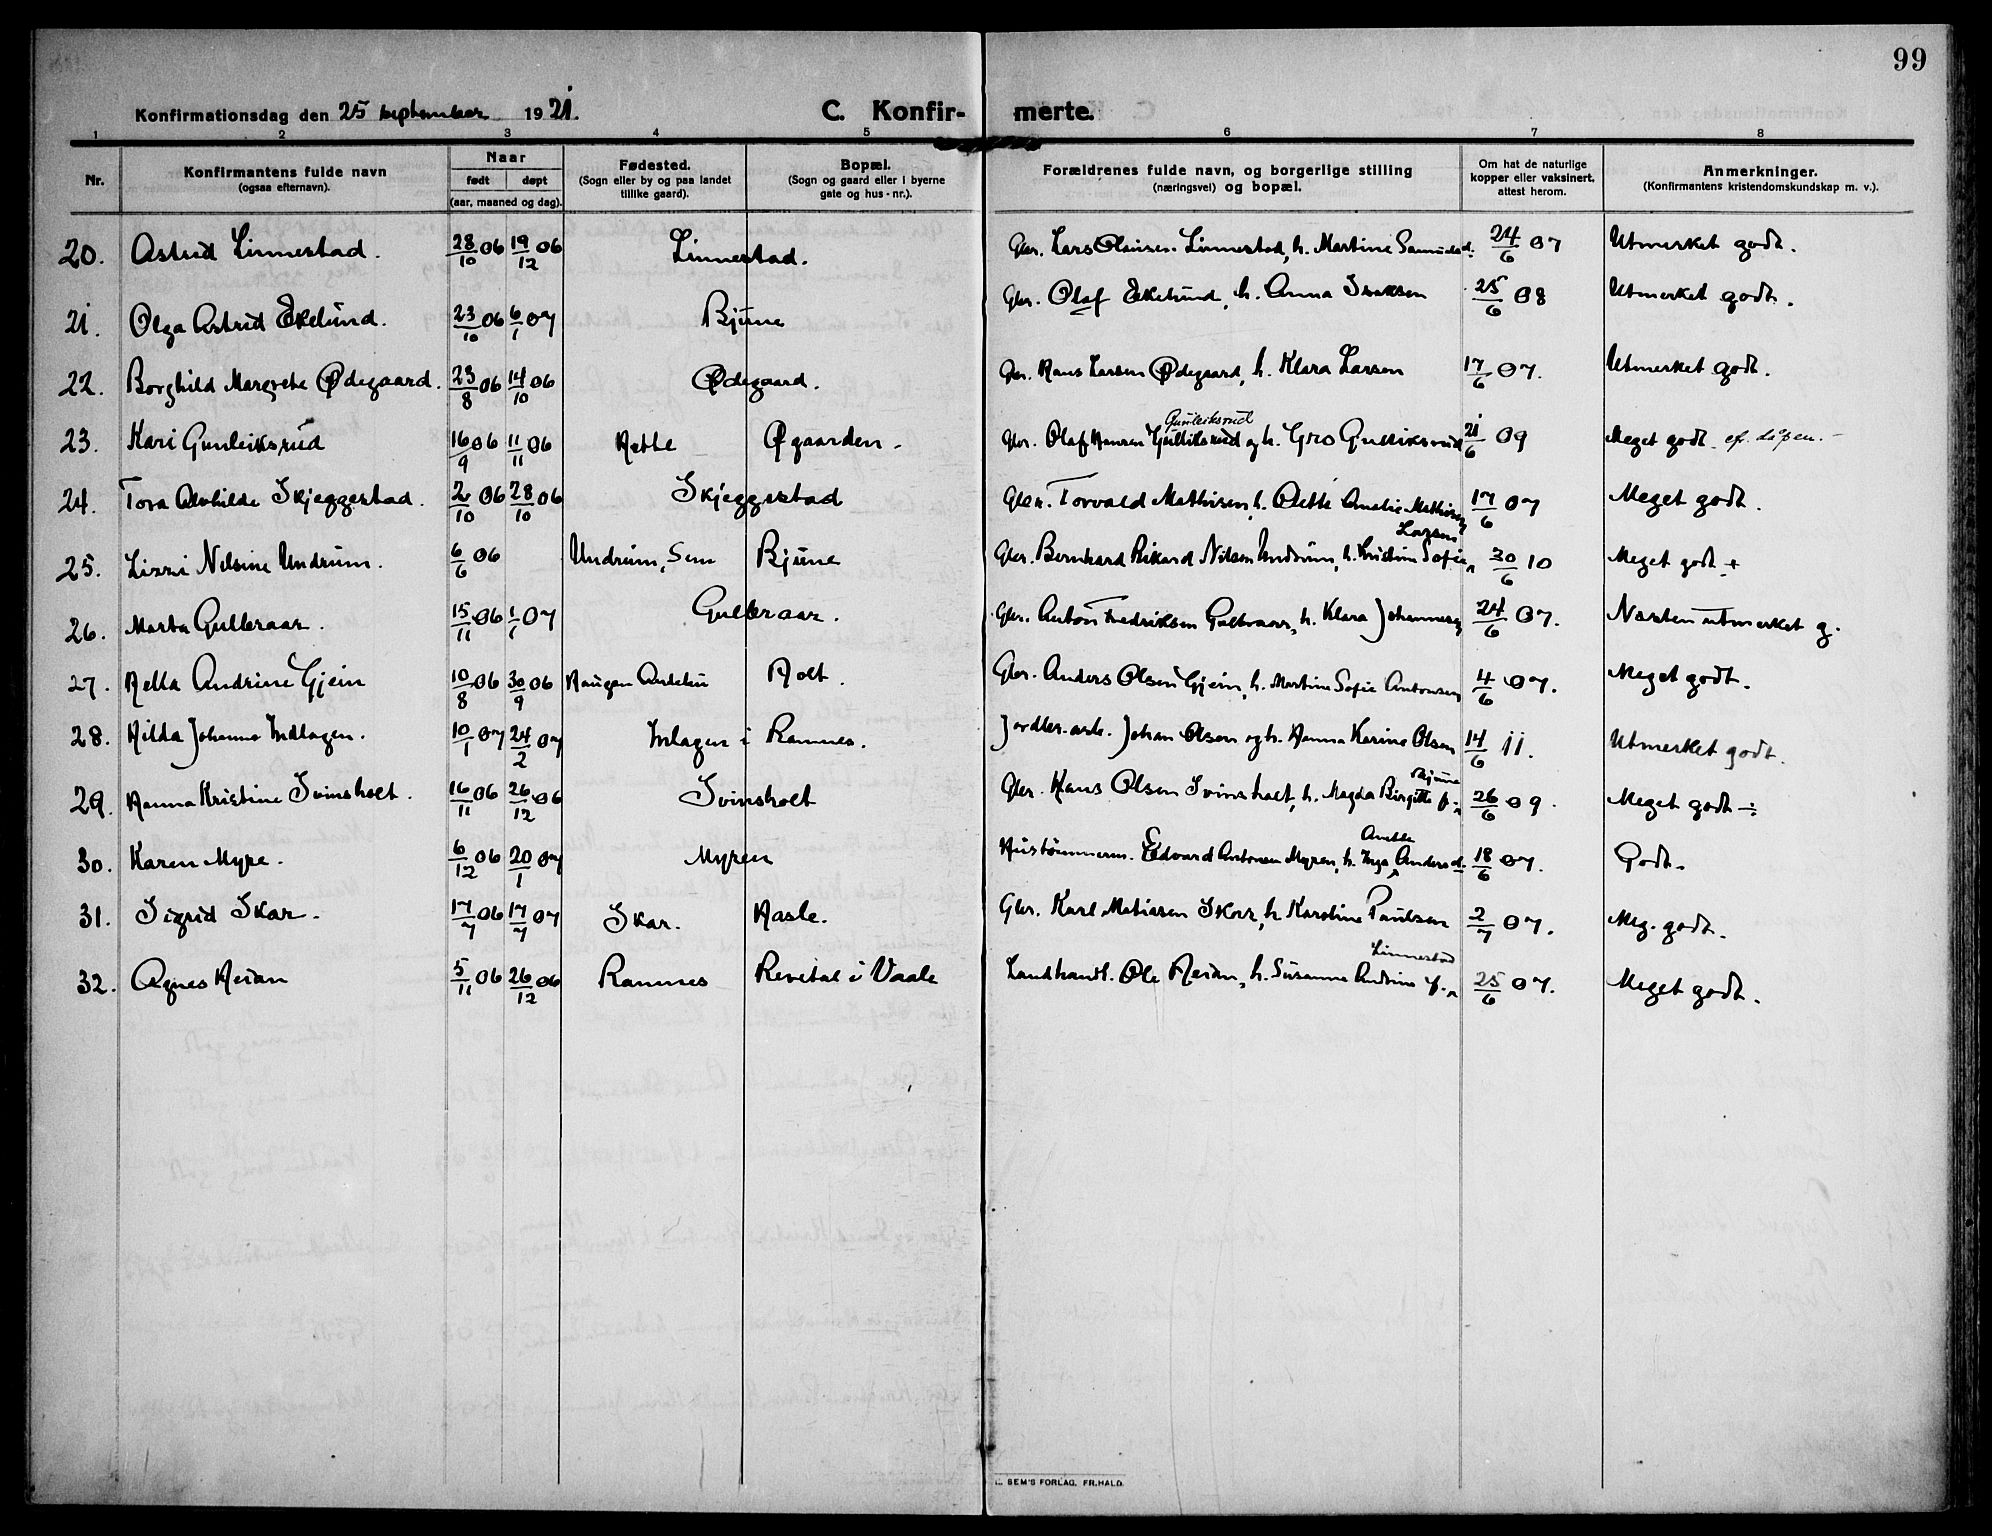 99
Konfirmationsdag den 25 september 1921.
C. Konfir- merte.
1 2 3 4 5 6 7 8
Nr.
Konfirmantens fulde navn
(ogsaa efternavn).
Naar
født døpt
(aar, maaned og dag).
Fødested.
(Sogn eller by og paa landet
tillike gaard).
Bopæl.
(Sogn og gaard eller i byerne
gate og hus-nr.).
Forældrenes fulde navn, og borgerlige stilling
(næringsvei) og bopæl.
Om hat de naturlige
kopper eller vaksinert,
attest herom.
Anmerkninger.
(Konfirmantens kristendomskundskap m. v.).
20. Astrid Linnestad. 28/10 06 19/12 06 Linnestad. Gbr. Lars Olausen Linnestad, h. Martine Samuelsd. 24/6 07 Utmerket godt.
21. Olga Astrid Ekelund. 23/10 06 6/1 07 Bjune Gbr. Olaf Ekelund, h. Anna Isaksen 25/6 08 Utmerket godt.
22. Borghild Margrete Ødegaard. 23/8 06 14/10 06 Ødegaard. Gbr. Hans Larsen Ødegaard, h. Klara Larsen 17/6 07. Utmerket godt.
Gunleiksrud
23. Kari Gunleiksrud 16/9 06 11/11 06 Øgaarden. Gbr. Olaf Hansen Gulliksrud og h. Gro Gulliksrud 21/6 09 Meget godt.
24. Tora Alvhilde Skjeggestad. 2/10 06 28/10 06 Skjeggestad Gbr. Torvald Mathisen, h. Olette Amalie Mathisen 17/6 07 Meget godt.
Larsen
25. Lizzi Nilsine Undrum. 6/6 06 Undrum, Sem Bjune Gbr. Bernhard Rikard Nilsen Undrum, h. Kristine Sofie 30/6 10 Meget godt +
26. Marta Gulbraar. 15/11 06 1/1 07 Gulbraar. Gbr. Anton Fredriksen Gulbraar, h. Klara Johannesen 24/6 07. Næsten utmerket g.
27. Hella Andrine Gjein 10/8 06 30/9 06 Haugan Andebu Holt. Gbr. Anders Olsen Gjein, h. Martine Sofie Antonsen 4/6 07. Meget godt.
28. Hilda Johanne Indlagen. 10/1 07 24/2 07 Inlagen i Ramnes. Jordbr.arb. Johan Olsen og h. Hanna Karine Olsen 14/6 11. Utmerket godt.
Bjune
29. Hanna Kristine Svinsholt. 16/11 06 26/12 06 Svinsholt Gbr. Hans Olsen Svinsholt, h. Magda Birgitte f. 26/6 09. Meget godt ÷
Anette
30. Karen Myre. 6/12 06 20/1 07 Myren Hustømmerm. Edvard Antonsen Myren, h. Inga Andersd. 18/6 07. Godt.
31. Sigrid Skar. 17/7 06 17/7 07 Skar. Haslе. Gbr. Karl Matiasen Skar, h. Karoline Paulsen 2/7 07. Meg. godt.
Linnestad
32. Agnes Heian 5/11 06 26/12 06 Ramnes Revetal i Vaale Landhandl. Ole Heian, h. Susanne Andrine f. 25/6 07. Meget godt.
SEM'S FORLAG, FR.HALD.